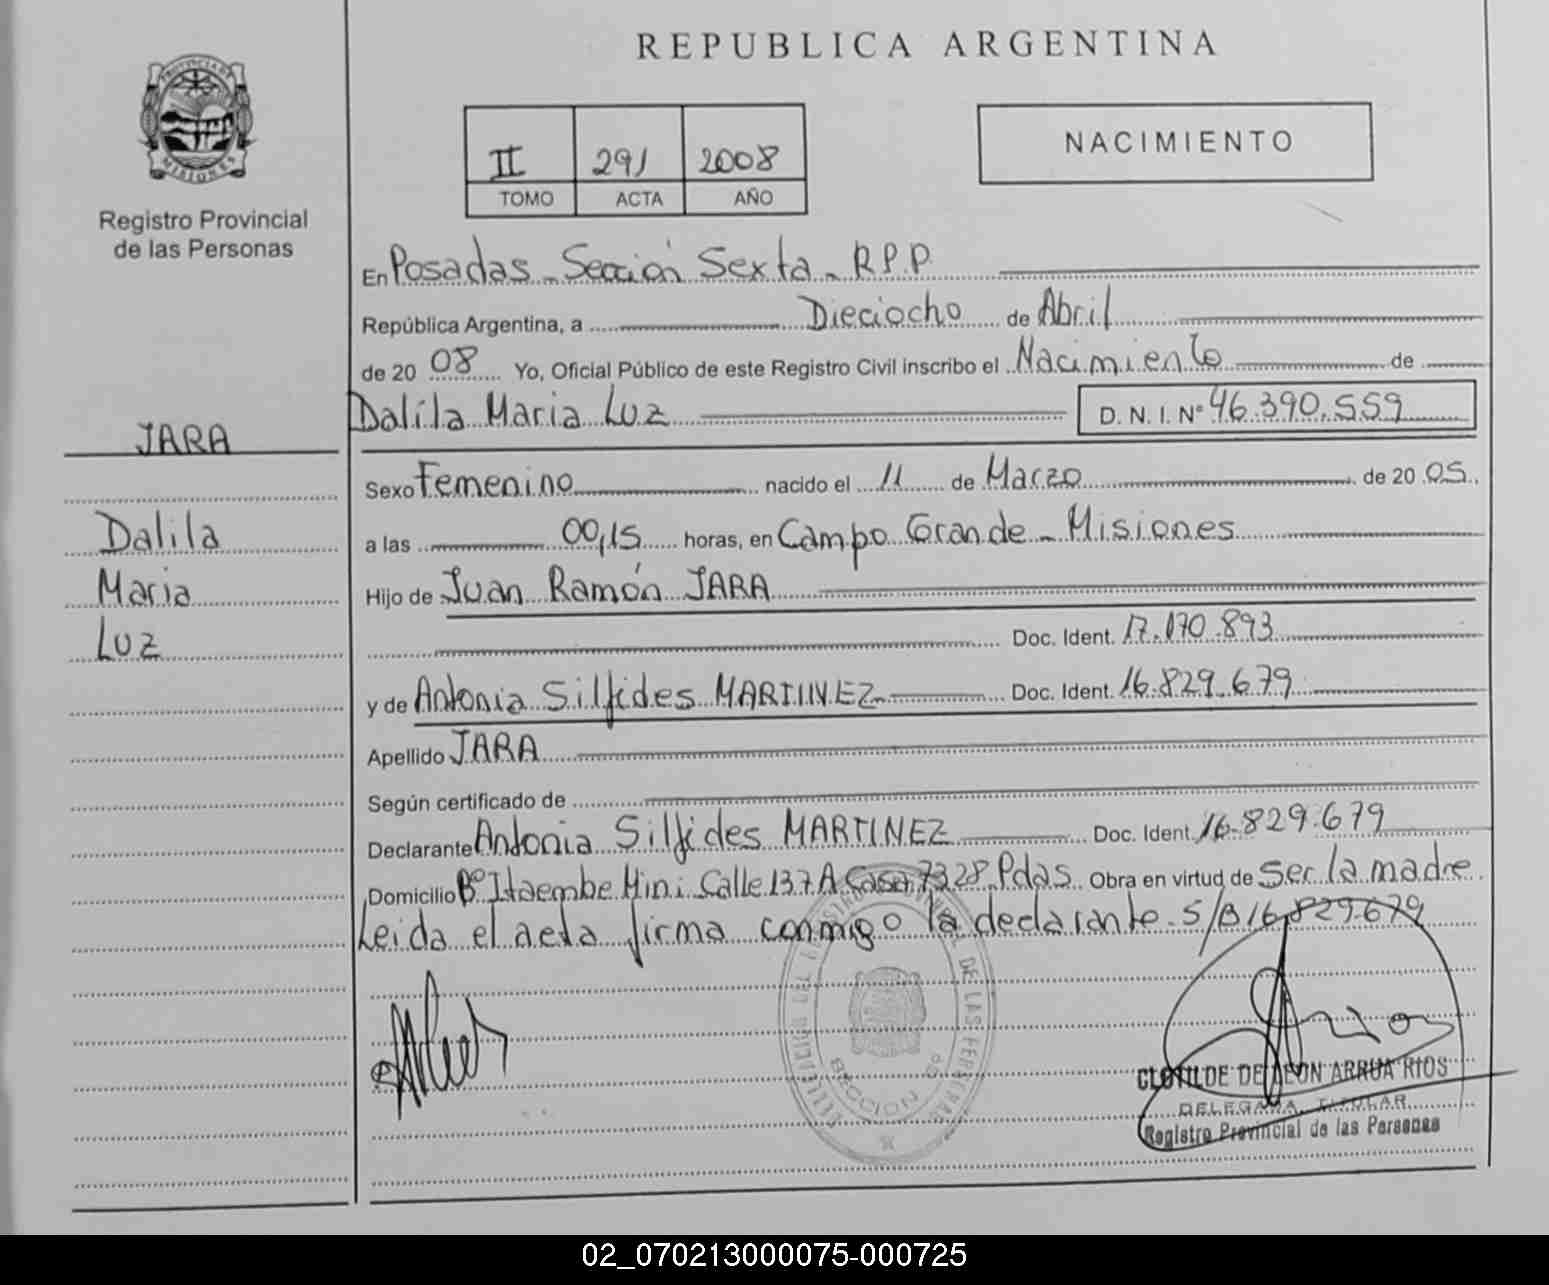 PROVINCIA DE
MISIONES
Registro Provincial
de las Personas
JARA
Dalila
Maria
Luz
REPUBLICA ARGENTINA
II 291 2008
TOMO ACTA AÑO
NACIMIENTO
En Posadas - Sección Sexta - R.P.P.
República Argentina, a Dieciocho de Abril
de 20 08 Yo, Oficial Público de este Registro Civil inscribo el Nacimiento de
Dalila Maria Luz D. N. I. Nº 46.390.559
Sexo Femenino nacido el 11 de Marzo de 20 05
a las 00,15 horas, en Campo Grande - Misiones
Hijo de Juan Ramón JARA
Doc. Ident. 17.170.893
y de Antonia Silfides MARTINEZ Doc. Ident. 16.829.679
Apellido JARA
Según certificado de
Declarante Antonia Silfides MARTINEZ Doc. Ident. 16.829.679
Domicilio Bº Itaembe Mini Calle 137 A Casa 7328 Pdas Obra en virtud de Ser la madre
Leida el acta firma conmigo la declarante. S/B 16.829.679
DE LAS PERSONAS
SECCION 6º
CLOTILDE DE LEON ARRUA RIOS
DELEGADA TITULAR
Registro Provincial de las Personas
02_070213000075-000725